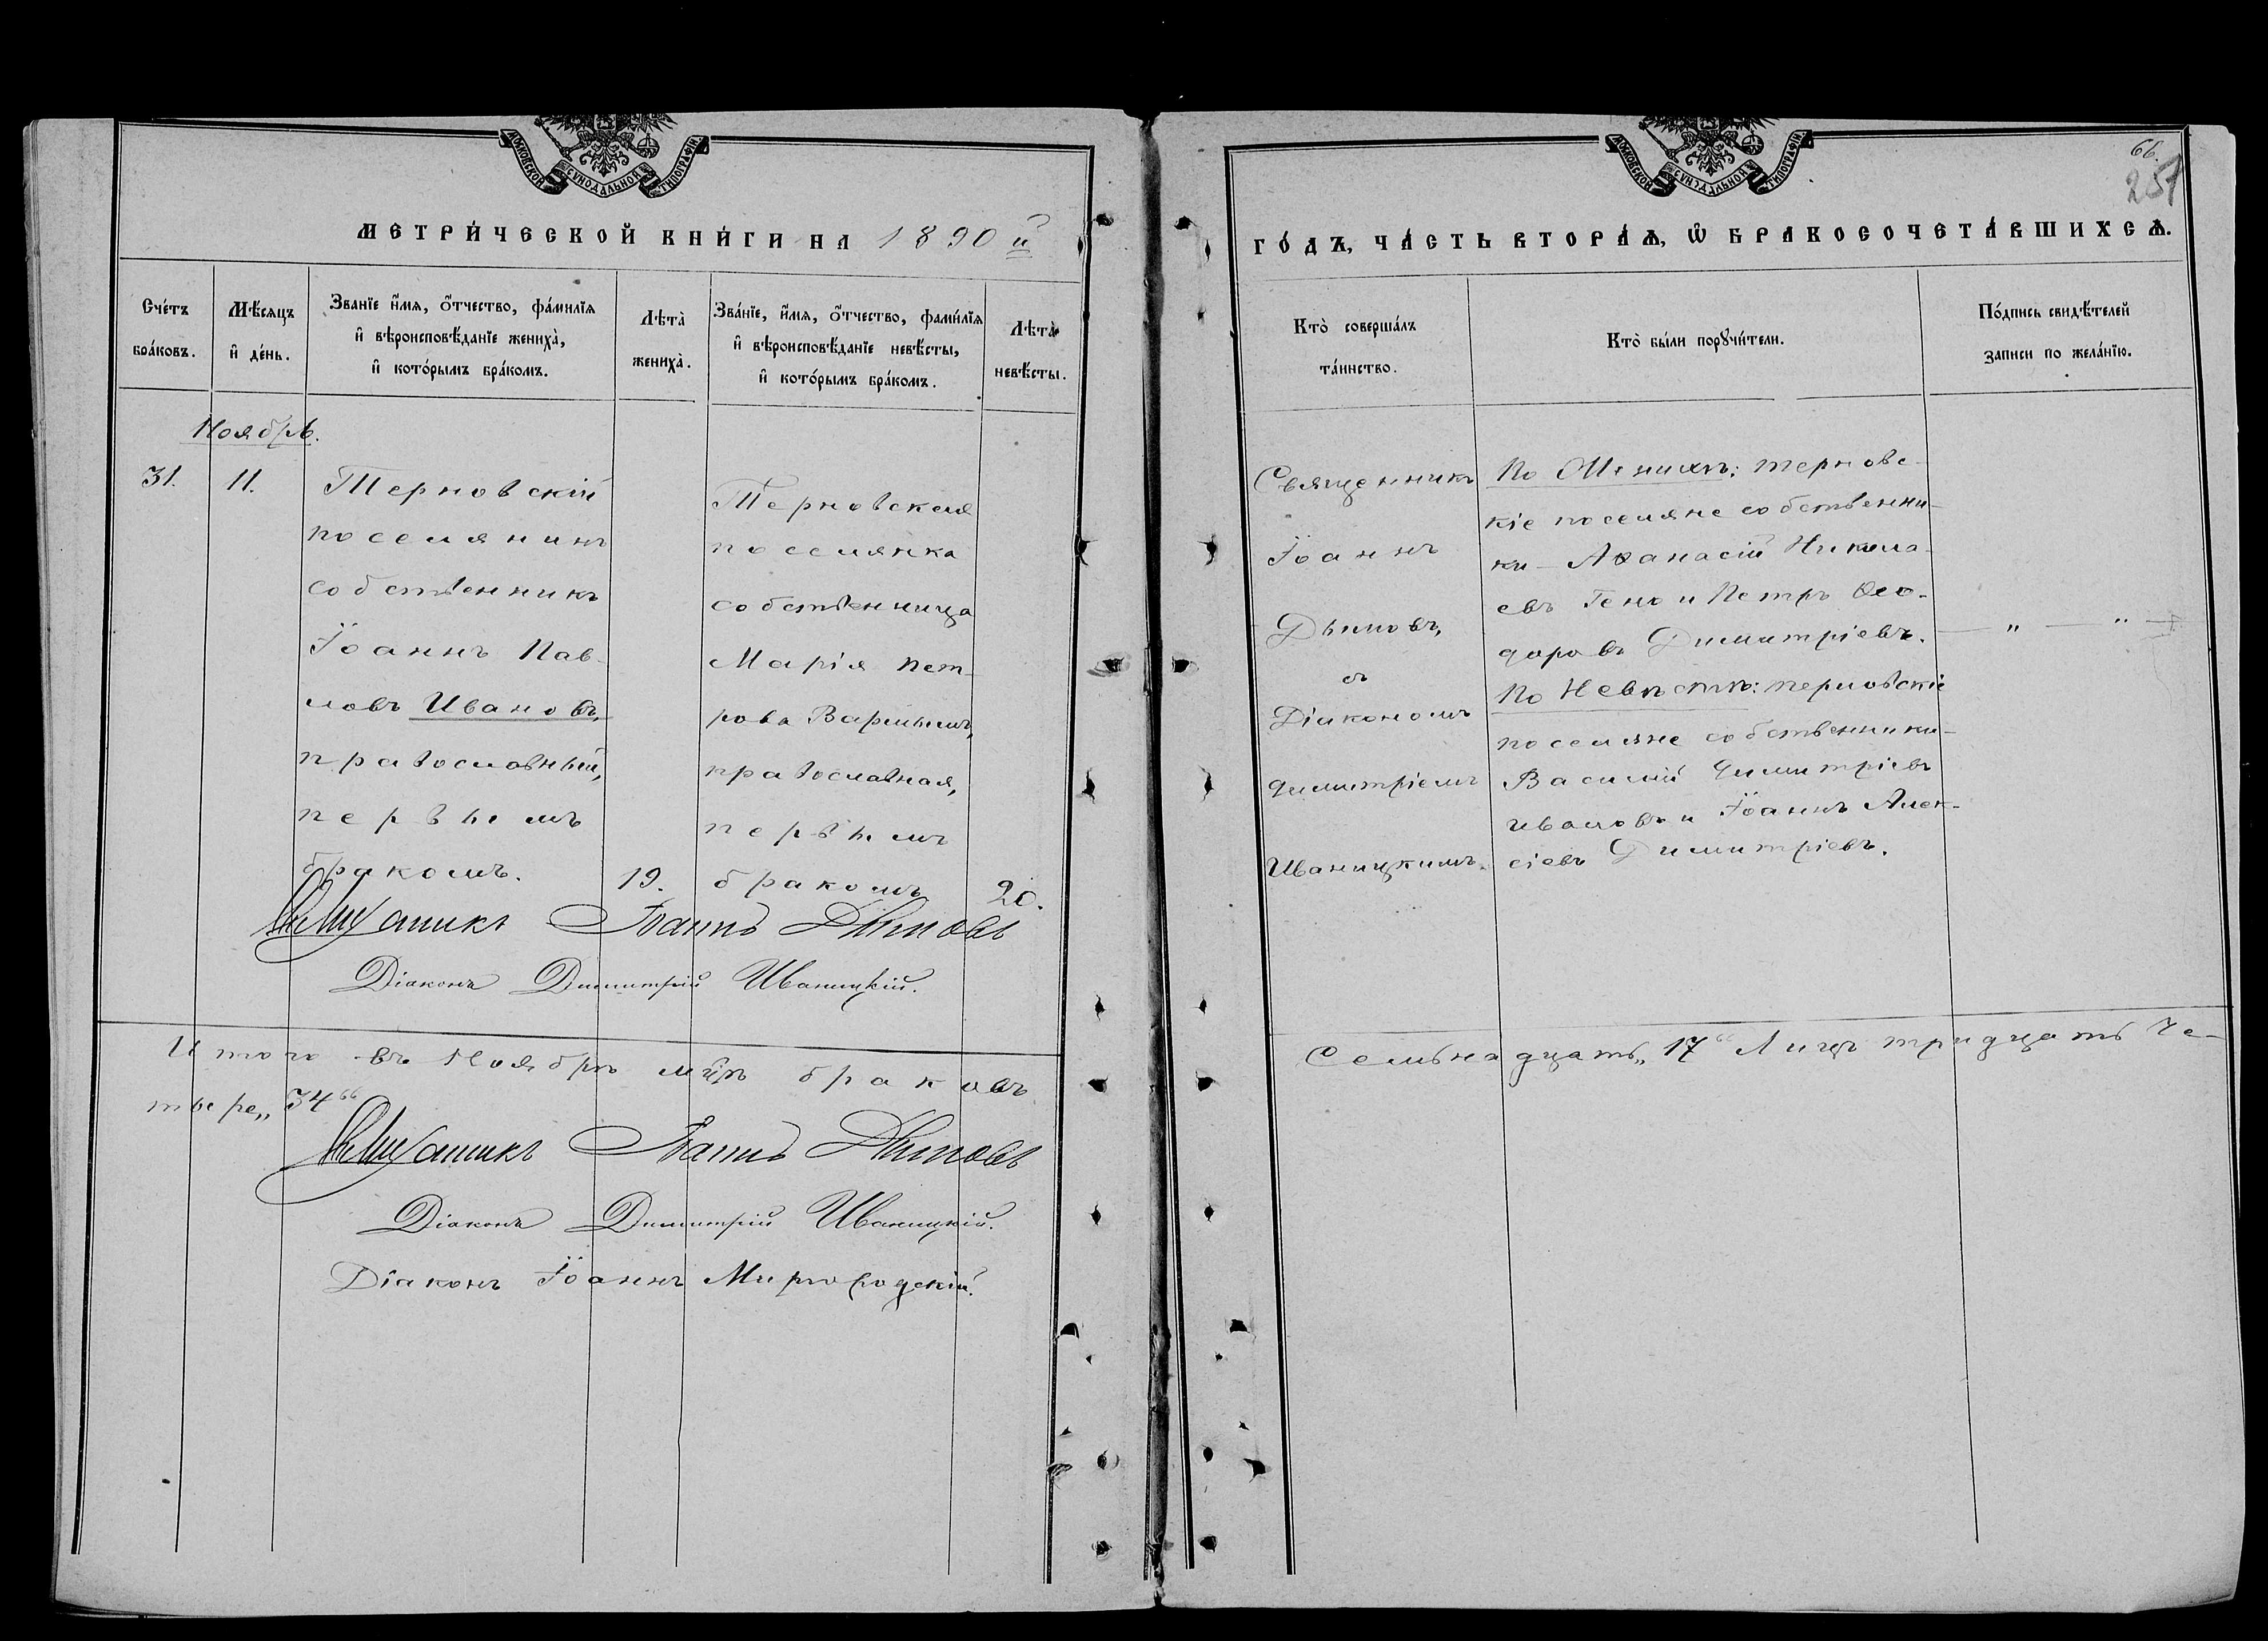 МОСКОВСКОЙ СѴНОДАЛЬНОЙ ТИПОГРАФІИ
МЕТРИ́ЧЕСКОЙ КНИ́ГИ НА 1890 й
Сче́тъ бра́ковъ.
Мѣ́сяцъ и҆ де́нь.
Званїе и҆́мя, ѻ҆́тчество, фамилїя
и҆ вѣроисповѣ́данїе жениха̀,
и҆ кото́рымъ бра́комъ.
Лѣта̀ жениха̀.
Зва́нїе, и҆́мя, ѻ҆́тчество, фами́лїя
и҆ вѣроисповѣ́данїе невѣ́сты,
и҆ кото́рымъ бра́комъ.
Лѣта̀ невѣ́сты.
Ноябрь.
31.
11.
Терновскій
поселянинъ
собственникъ
Іоаннъ Пав-
ловъ Ивановъ,
православный,
первымъ
бракомъ.
19.
Терновская
поселянка
собственница
Марія Пет-
рова
православная,
первымъ
бракомъ
20.
Священникъ Іоаннъ Дымовъ
Діаконъ Димитрій Иваницкій.
Итого въ Ноябрѣ м-цѣ браковъ
тыре „34“
Священникъ Іоаннъ Дымовъ
Діаконъ Димитрій Иваницкій.
Діаконъ Іоаннъ Миргородскій.
МОСКОВСКОЙ СѴНОДАЛЬНОЙ ТИПОГРАФІИ
66.
257
ГО́ДЪ, ЧА́СТЬ ВТОРА́Ѧ, Ѡ҆ БРАКОСОЧЕТА́ВШИХСѦ.
Кто̀ соверша́лъ
та́инство.
Кто̀ бы́ли порꙋчи́тели.
По́дпись свидѣ́телей
записи по жела́нїю.
Священникъ
Іоаннъ
Дымовъ,
съ
Діакономъ
Димитріемъ
Иваницкимъ.
По Женихѣ: терновс-
кіе поселяне собственни-
ки – Аѳанасій Никола-
евъ Гено и Петръ Ѳео-
доровъ Димитріевъ.
По Невѣстѣ: терновскіе
поселяне собственники –
Василій Димитріевъ
Ивановъ и Іоаннъ Алек-
сіевъ Димитріевъ.
— „ — „ —
Семьнадцать „17“ Лицъ тридцать че-